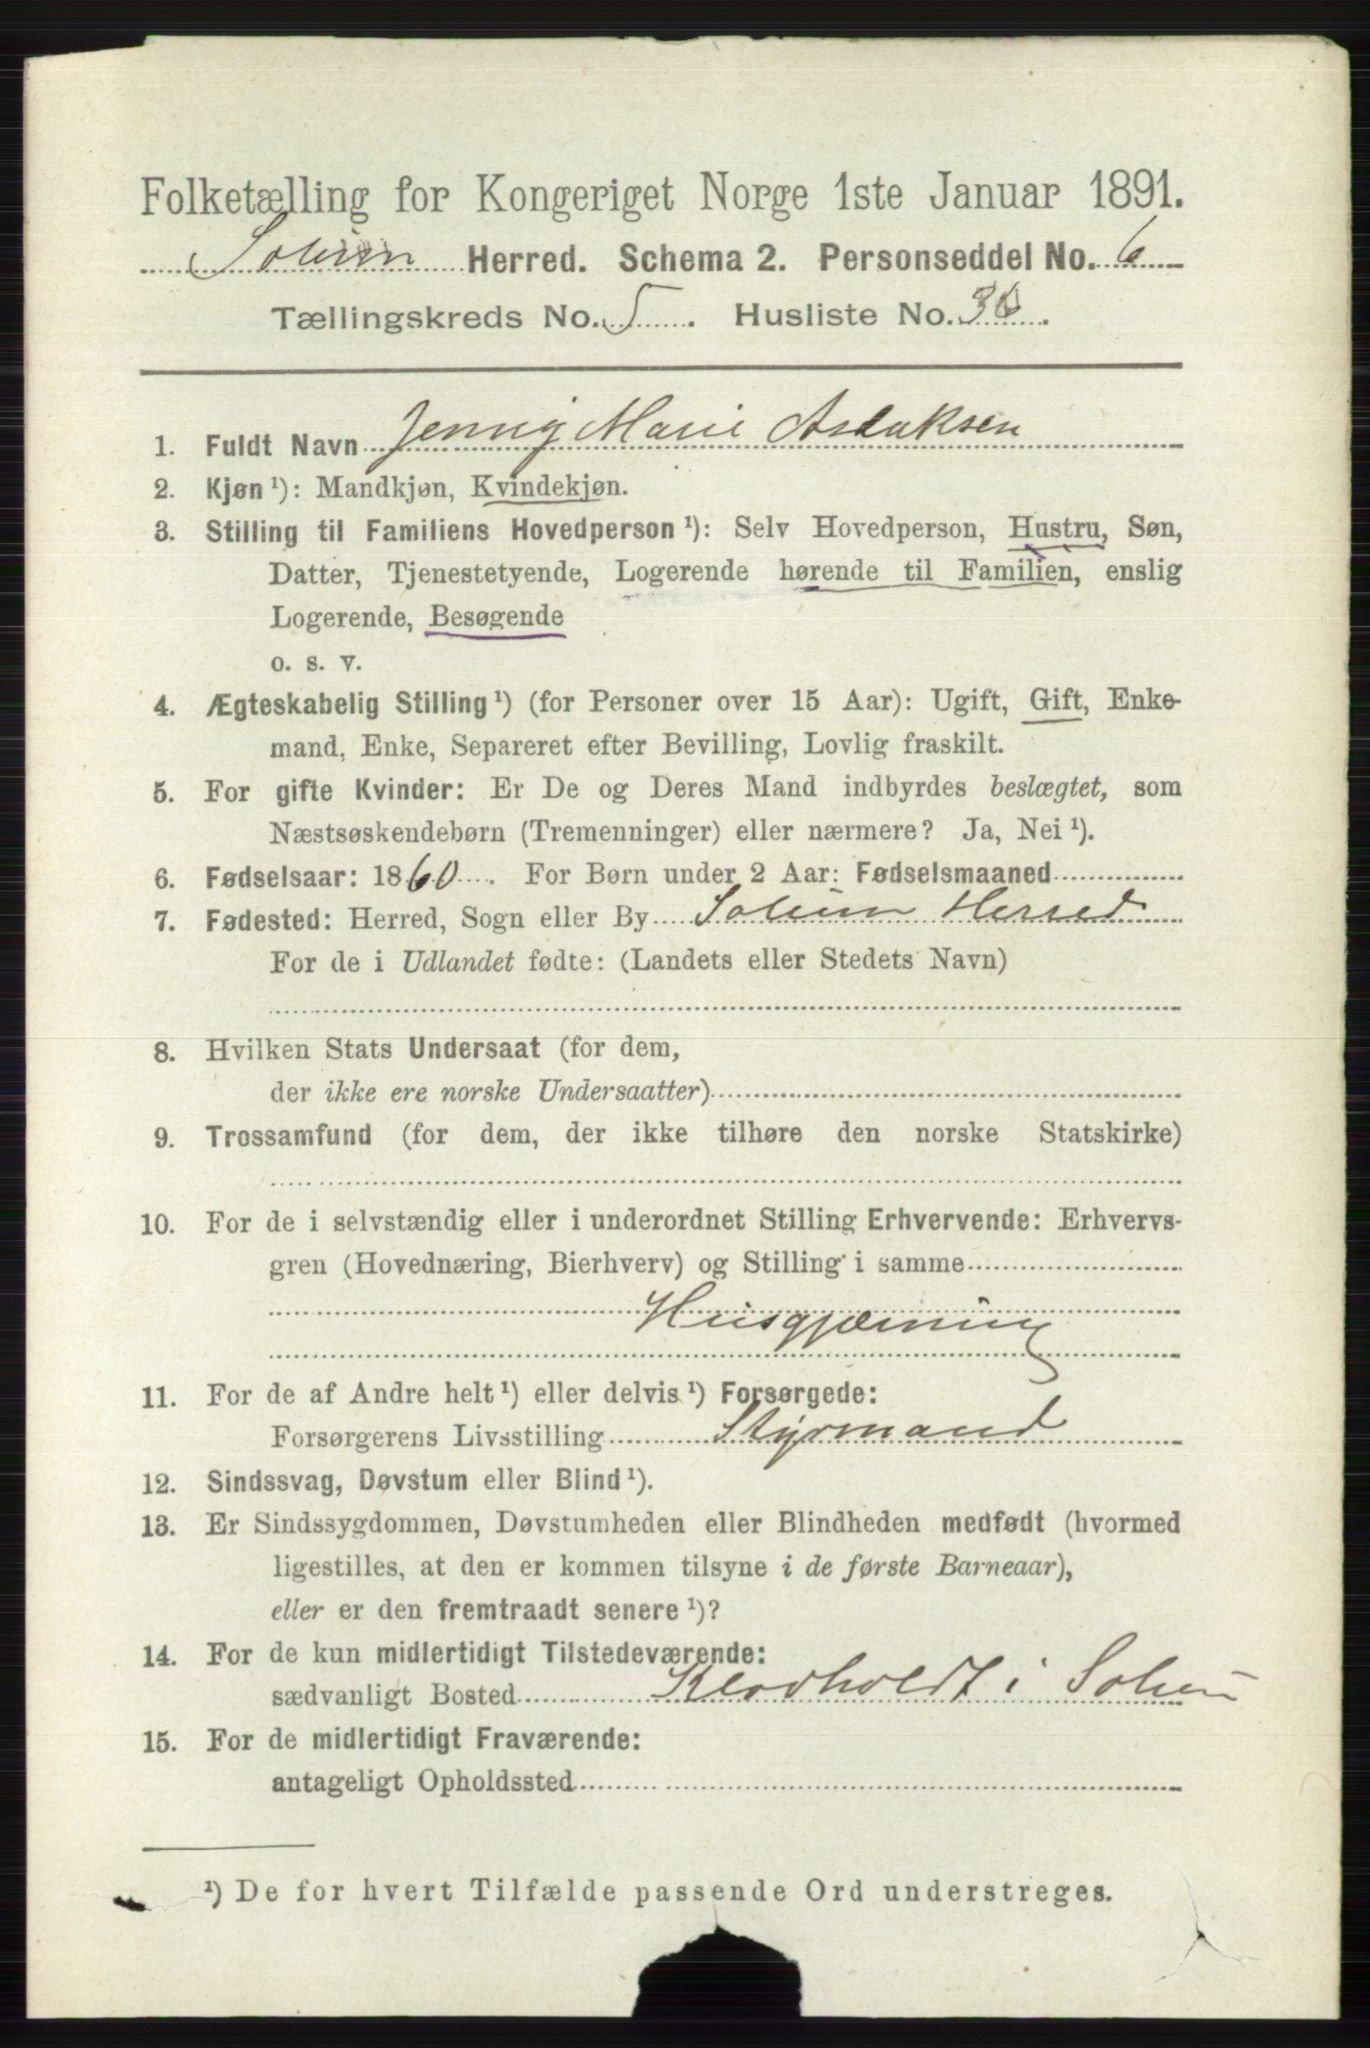 Folketælling for Kongeriget Norge 1ste Januar 1891.
Solum Herred. Schema 2. Personseddel No. 6
Tællingskreds No. 5. Husliste No. 36.
1. Fuldt Navn Jenny Marie Aslaksen
2. Kjøn ¹): Mandkjøn, Kvindekjøn.
3. Stilling til Familiens Hovedperson ¹): Selv Hovedperson, Hustru, Søn,
Datter, Tjenestetyende, Logerende hørende til Familien, enslig
Logerende, Besøgende
o. s. v.
4. Ægteskabelig Stilling ¹) (for Personer over 15 Aar): Ugift, Gift, Enke-
mand, Enke, Separeret efter Bevilling, Lovlig fraskilt.
5. For gifte Kvinder: Er De og Deres Mand indbyrdes beslægtet, som
Næstsøskendebørn (Tremenninger) eller nærmere? Ja, Nei ¹).
6. Fødselsaar: 1860. For Børn under 2 Aar: Fødselsmaaned
7. Fødested: Herred, Sogn eller By Solum Herred
For de i Udlandet fødte: (Landets eller Stedets Navn)
8. Hvilken Stats Undersaat (for dem,
der ikke ere norske Undersaatter)
9. Trossamfund (for dem, der ikke tilhøre den norske Statskirke)
10. For de i selvstændig eller i underordnet Stilling Erhvervende: Erhvervs-
gren (Hovednæring, Bierhverv) og Stilling i samme
Husgjærning
11. For de af Andre helt ¹) eller delvis ¹) Forsørgede:
Forsørgerens Livsstilling Styrmand
12. Sindssvag, Døvstum eller Blind ¹).
13. Er Sindssygdommen, Døvstumheden eller Blindheden medfødt (hvormed
ligestilles, at den er kommen tilsyne i de første Barneaar),
eller er den fremtraadt senere ¹)?
14. For de kun midlertidigt Tilstedeværende:
sædvanligt Bosted i Solum
15. For de midlertidigt Fraværende:
antageligt Opholdssted
¹) De for hvert Tilfælde passende Ord understreges.